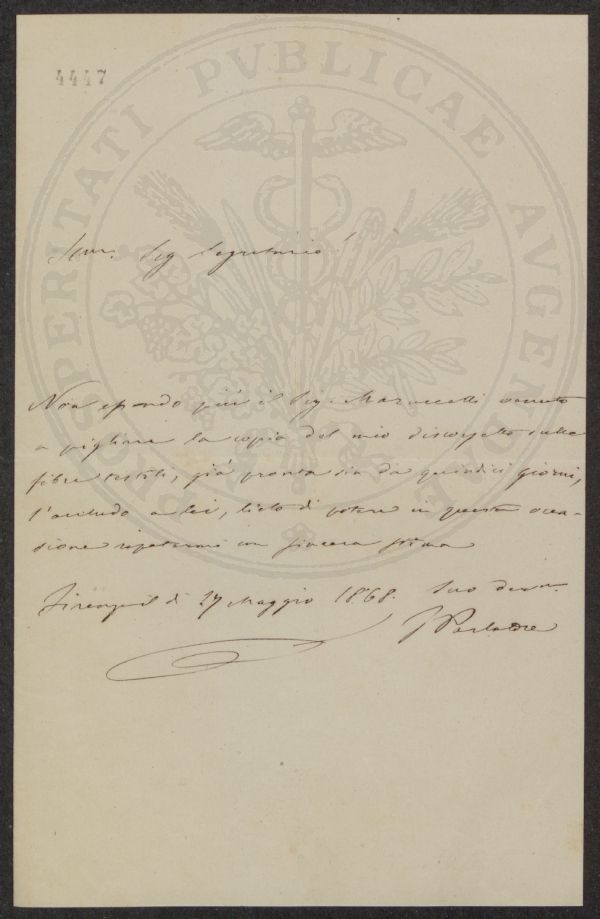 4447
PROSPERITATI PVBLICAE AVGENDAE
Sig Segretario!
Non essendo più il Sig. Maruccelli venuto
a pigliare la copia del mio discorsetto sulle
fibre tessili, già pronta sin da quindici giorni,
l'accludo a Lei, lieto di potere in questa occa-
sione ripetermi con sincera stima
Firenze il di 27 Maggio 1868. Suo dev.
Parlatore